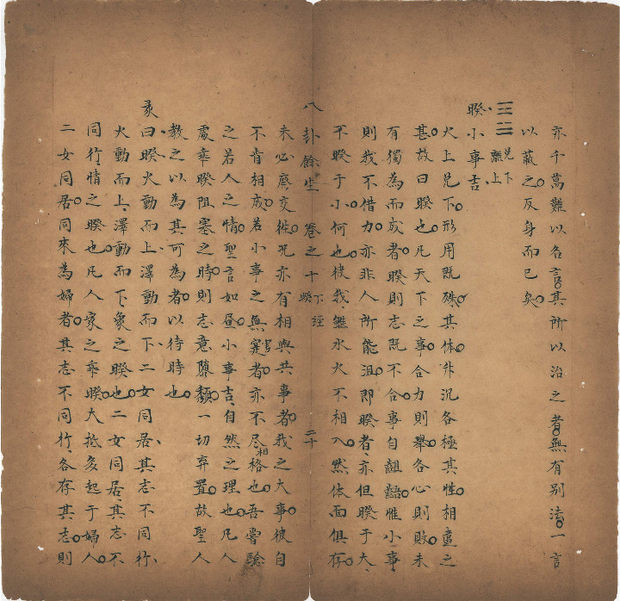 亦千萬難以各言其所以治之者無有別法一言
以蔽之反身而已矣
兌下
離上
睽小事吉
火上兌下形用既殊其体舛況各極其性相盡之
甚故曰睽也凡天下之事合力則舉各心則敗未
有獨為而成者睽則志既不合事自齟齬惟小事
則我不借力亦非人所能沮即睽者亦但睽于大
不睽于小何也彼我雖水火不相入然体面俱存
八卦餘生 卷之十 下經 睽 二十
未必廢交徃兄亦有相與共事者我之大事彼自
不肯相成若小事之無害者亦不盡相格也吾嘗驗
之若人之情聖言如昼小事吉自然之理也凡人
處乖睽阻塞之時則志意隳頹一切弃置故聖人
教之以為其可為者以待時也
彖曰睽火動而上澤動而下二女同居其志不同行
火動而上澤動而下象之睽也二女同居其志不
同行情之睽也凡人家之乖睽大抵多起于婦人
二女同居同來為婦者其志不同行各存其志則